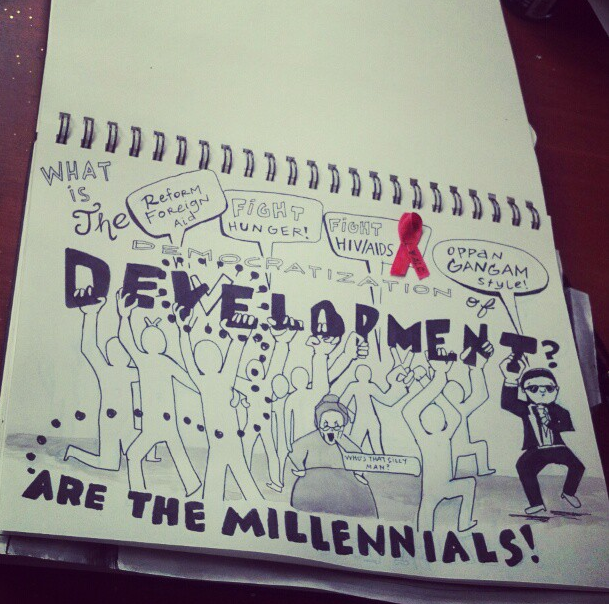 WHAT
is
The
REFORM
FOREIGN
Aid
FIGHT
HUNGER!
FIGHT
HIV/AIDS
OPPAN
GANGAM
Style!
DEMOCRATIZATION
of
DEVELOPMENT?
WHO'S THAT SILLY
MAN?
ARE THE MILLENNIALS!